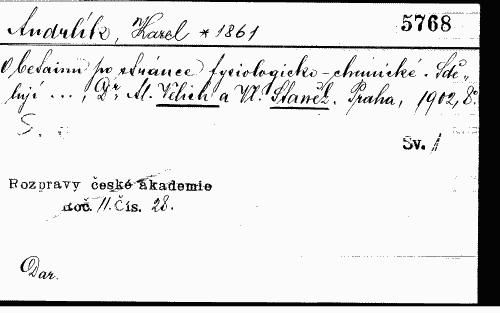 Andrlík, Karel * 1861
5768
O betainu po stránce fysiologicko-chemické. Sdě-
lují ..., Dr. Al. Velich a Vl. Staněk. Praha, 1902, 8°.
S.
Sv. 1
Rozpravy české akademie
roč. 11. Čís. 28.
Dar.